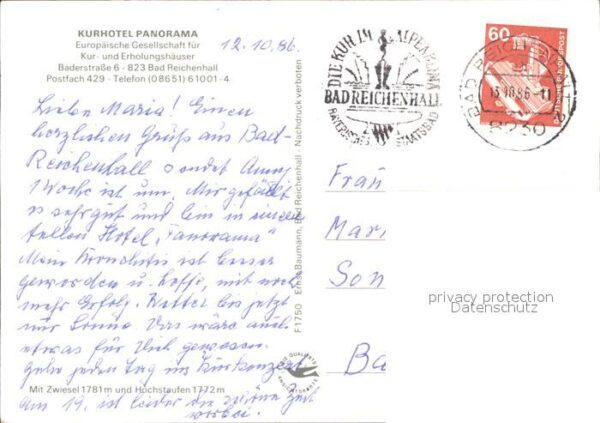 KURHOTEL PANORAMA
Europäische Gesellschaft für
Kur- und Erholungshäuser
Baderstraße 6 - 823 Bad Reichenhall
Postfach 429 - Telefon (08651) 61001-4
12.10.86.
Lieben Maria! Einen
herzlichen Gruß aus Bad-
Reichenhall sendet Anny
1 Woche ist um, Mir gefällt
es sehr gut und bin in einem
tollen Hotel "Panorama"
Mein Bronchitis ist besser
geworden u. hoffe, mit noch
mehr Erfolg. Wetter bis jetzt
nur Sonne. Das wäre auch
etwas für Dich gewesen.
Gehe jeden Tag ins Kurkonzert
Mit Zwiesel 1781 m und Hochstaufen 1772 m
Am 19. ist leider die schöne Zeit
vorbei.
F1750 Ernst Baumann, Bad Reichenhall - Nachdruck verboten
DIE KUR IM ALPENKLIMA
BAD REICHENHALL
BAYERISCHES STAATSBAD
60
DEUTSCHE BUNDESPOST
BAD REICHENHALL
13.10.86-11
8230
Frau
Mari
Son
Ba
privacy protection
Datenschutz